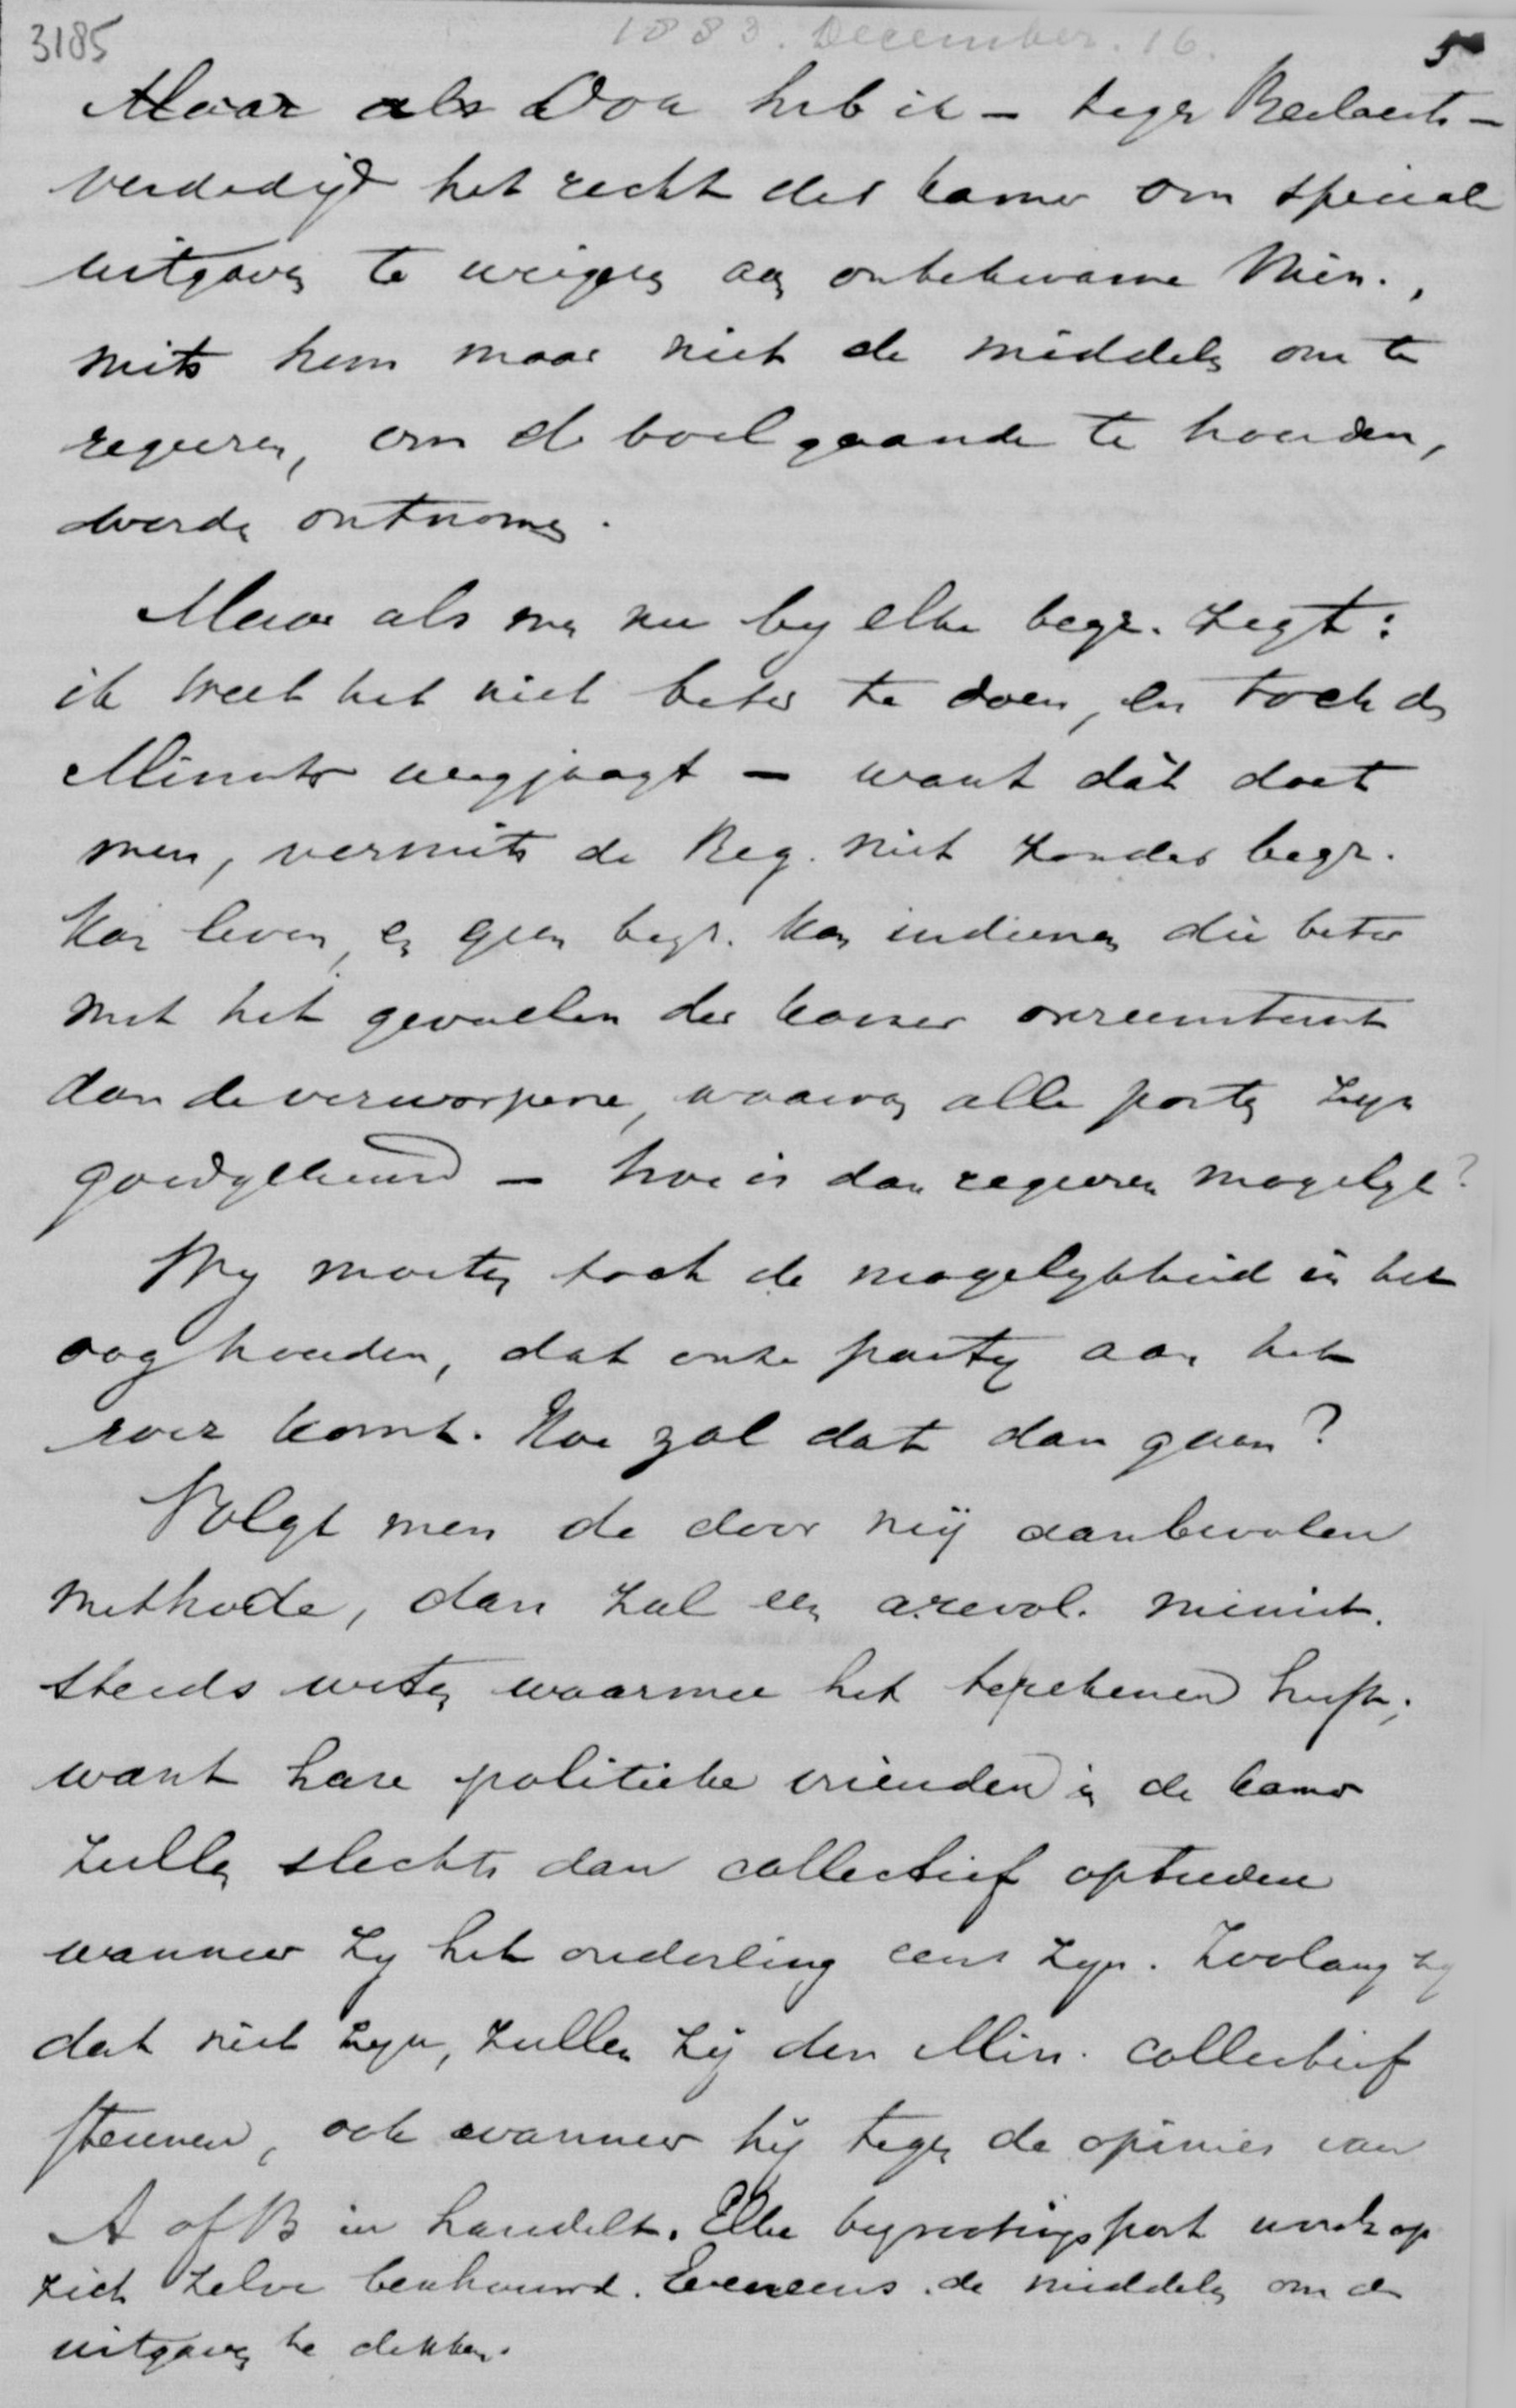 3185
1883. December. 16.
5
Maar als Don heb ik – tegen Beelaerts –
verdedigd het recht der kamer om speciale
uitgaven te weigeren aan onbekwame Min.,
mits hem maar niet de middelen om te
regeeren, om de boel gaande te houden,
worde ontnomen.
Maar als men nu by elke begr. zegt:
ik weet het niet beter te doen, en toch den
Minister wegjaagt – want dàt doet
men, vermits de Reg. niet zonder begr.
kan leven, en geen begr. kan indienen die beter
met het gevoelen der kamer overeenstemt
dan de verworpene, waarvan alle posten zyn
goedgekeurd – hoe is dan regeeren mogelyk?
Wy moeten toch de mogelykheid in het
oog houden, dat onze party aan het
roer komt. Hoe zal dat dan gaan?
Volgt men de door mij aanbevolen
methode, dan zal een a.revol. minist.
steeds weten waarmee het te rekenen heeft;
want hare politieke vrienden in de kamer
zullen slechts dan collectief optreden
wanneer zy het onderling eens zyn. Zoolang zy
dat niet zyn, zullen zij den Min. collectief
steunen, ook wanneer hij tegen de opinies van
A of B in handelt. Elke begrootingspost wordt op
zich zelve beschouwd. Eveneens de middelen om de
uitgaven te dekken.